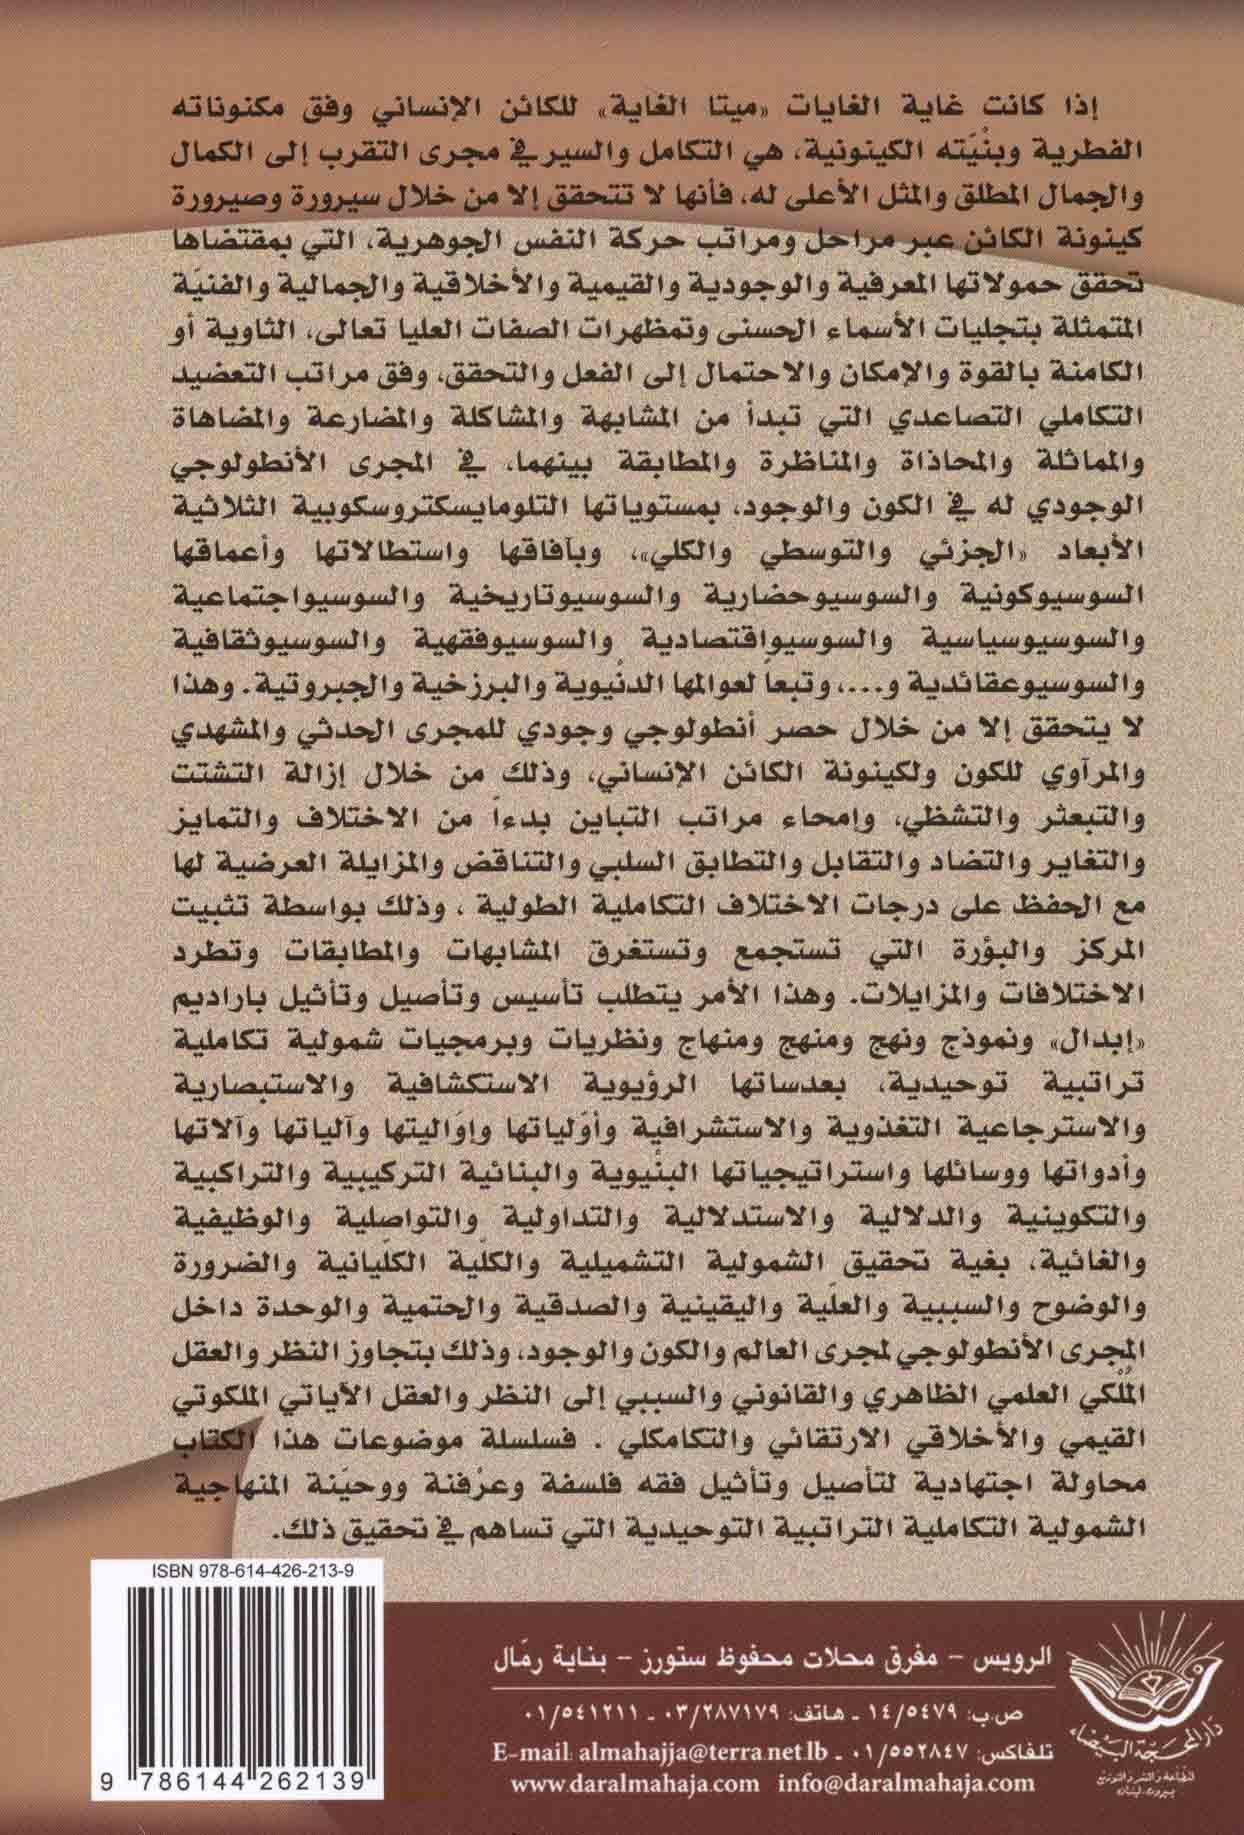 إذا كانت غاية الغايات «ميتا الغاية» للكائن الإنساني وفق مكنوناته
الفطرية وبنْيَته الكينونية، هي التكامل والسير في مجرى التقرب إلى الكمال
والجمال المطلق والمثل الأعلى له، فأنها لا تتحقق إلا من خلال سيرورة وصيرورة
كينونة الكائن عبر مراحل ومراتب حركة النفس الجوهرية، التي بمقتضاها
تحقق حمولاتها المعرفية والوجودية والقيمية والأخلاقية والجمالية والفنيَة
المتمثلة بتجليات الأسماء الحسنى وتمظهرات الصفات العليا تعالى، الثاوية أو
الكامنة بالقوة والإمكان والاحتمال إلى الفعل والتحقق، وفق مراتب التعضيد
التكاملي التصاعدي التي تبدأ من المشابهة والمشاكلة والمضارعة والمضاهاة
والمماثلة والمحاذاة والمناظرة والمطابقة بينهما، في المجرى الأنطولوجي
الوجودي له في الكون والوجود، بمستوياتها التلومايسكتروسكوبية الثلاثية
الأبعاد «الجزئي والتوسطي والكلي»، وبآفاقها واستطالاتها وأعماقها
السوسيوكونية والسوسيوحضارية والسوسيوتاريخية والسوسيواجتماعية
والسوسيوسياسية والسوسيواقتصادية والسوسيوفقهية والسوسيوثقافية
والسوسيوعقائدية و...، وتبعاً لعوالمها الدنْيوية والبرزخية والجبروتية. وهذا
لا يتحقق إلا من خلال حصر أنطولوجي وجودي للمجرى الحدثي والمشهدي
والمرآوي للكون ولكينونة الكائن الإنساني، وذلك من خلال إزالة التشتت
والتبعثر والتشظي، وإمحاء مراتب التباين بدءاً من الاختلاف والتمايز
والتغاير والتضاد والتقابل والتطابق السلبي والتناقض والمزايلة العرضية لها
مع الحفظ على درجات الاختلاف التكاملية الطولية ، وذلك بواسطة تثبيت
المركز والبؤرة التي تستجمع وتستغرق المشابهات والمطابقات وتطرد
الاختلافات والمزايلات. وهذا الأمر يتطلب تأسيس وتأصيل وتأثيل باراديم
«إبدال» ونموذج ونهج ومنهج ومنهاج ونظريات وبرمجيات شمولية تكاملية
تراتبية توحيدية، بعدساتها الرؤيوية الاستكشافية والاستبصارية
والاسترجاعية التغذوية والاستشرافية وأوّلياتها وإوَاليتها وآلياتها وآلاتها
وأدواتها ووسائلها واستراتيجياتها البنْيوية والبنائية التركيبية والتراكبية
والتكوينية والدلالية والاستدلالية والتداولية والتواصلية والوظيفية
والغائية، بغية تحقيق الشمولية التشميلية والكلّية الكلّيانية والضرورة
والوضوح والسببية والعلّية واليقينية والصدقية والحتمية والوحدة داخل
المجرى الأنطولوجي لمجرى العالم والكون والوجود، وذلك بتجاوز النظر والعقل
المُلْكي العلمي الظاهري والقانوني والسببي إلى النظر والعقل الآياتي الملكوتي
القيمي والأخلاقي الارتقائي والتكامكلي . فسلسلة موضوعات هذا الكتاب
محاولة اجتهادية لتأصيل وتأثيل فقه فلسفة وعرْفنة ووحيَنة المنهاجية
الشمولية التكاملية التراتبية التوحيدية التي تساهم في تحقيق ذلك.
ISBN 978-614-426-213-9
9 786144 262139
الرويس - مفرق محلات محفوظ ستورز - بناية رمّال
ص.ب: ١٤/٥٤٧٩ ـ هاتف: ٠٣/٢٨٧١٧٩ ـ ٠١/٥٤١٢١١
تلفاكس: ٠١/٥٥٢٨٤٧ ـ E-mail: almahajja@terra.net.lb
www.daralmahaja.com info@daralmahaja.com
دار المحجة البيضاء
للطباعة والنشر والتوزيع
بيروت ـ لبنان